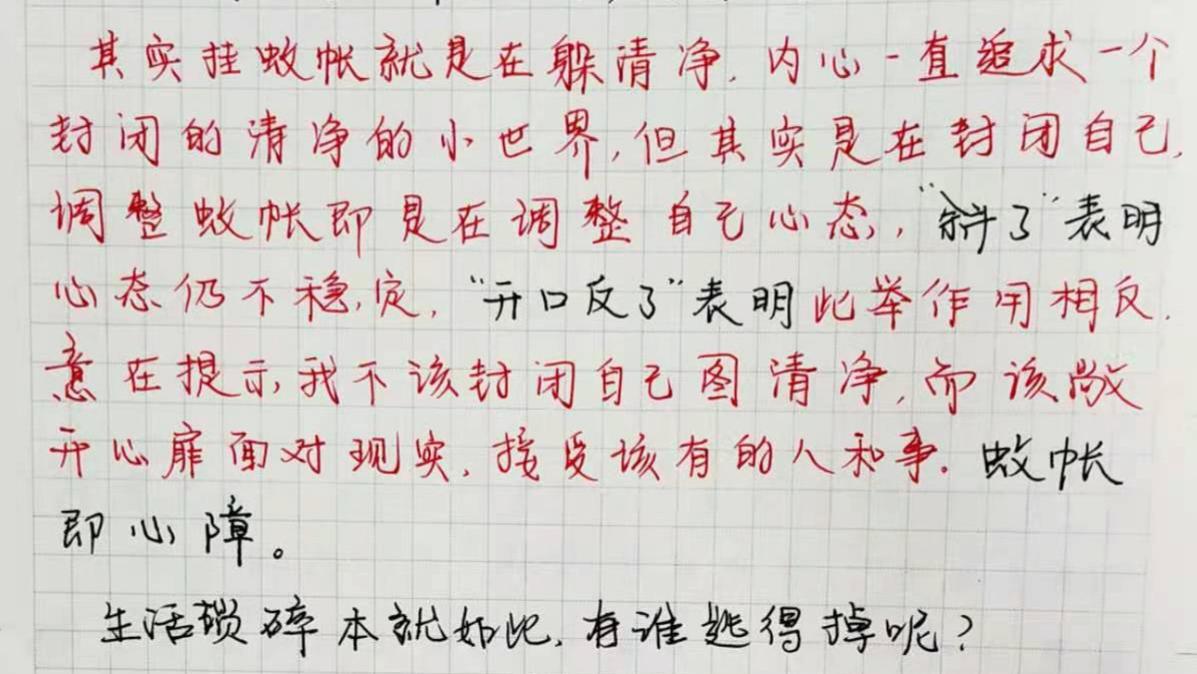 其实挂蚊帐就是在躲清净，内心一直追求一个
封闭的清净的小世界，但其实是在封闭自己，
调整蚊帐即是在调整自己心态，“斜了”表明
心态仍不稳定，“开口反了”表明此举作用相反，
意在提示，我不该封闭自己图清净，而该敞
开心扉面对现实，接受该有的人和事。蚊帐
即心障。
生活琐碎本就如此，有谁逃得掉呢？